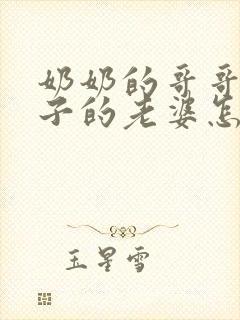 奶奶的哥哥
子的老婆怎
玉星雪